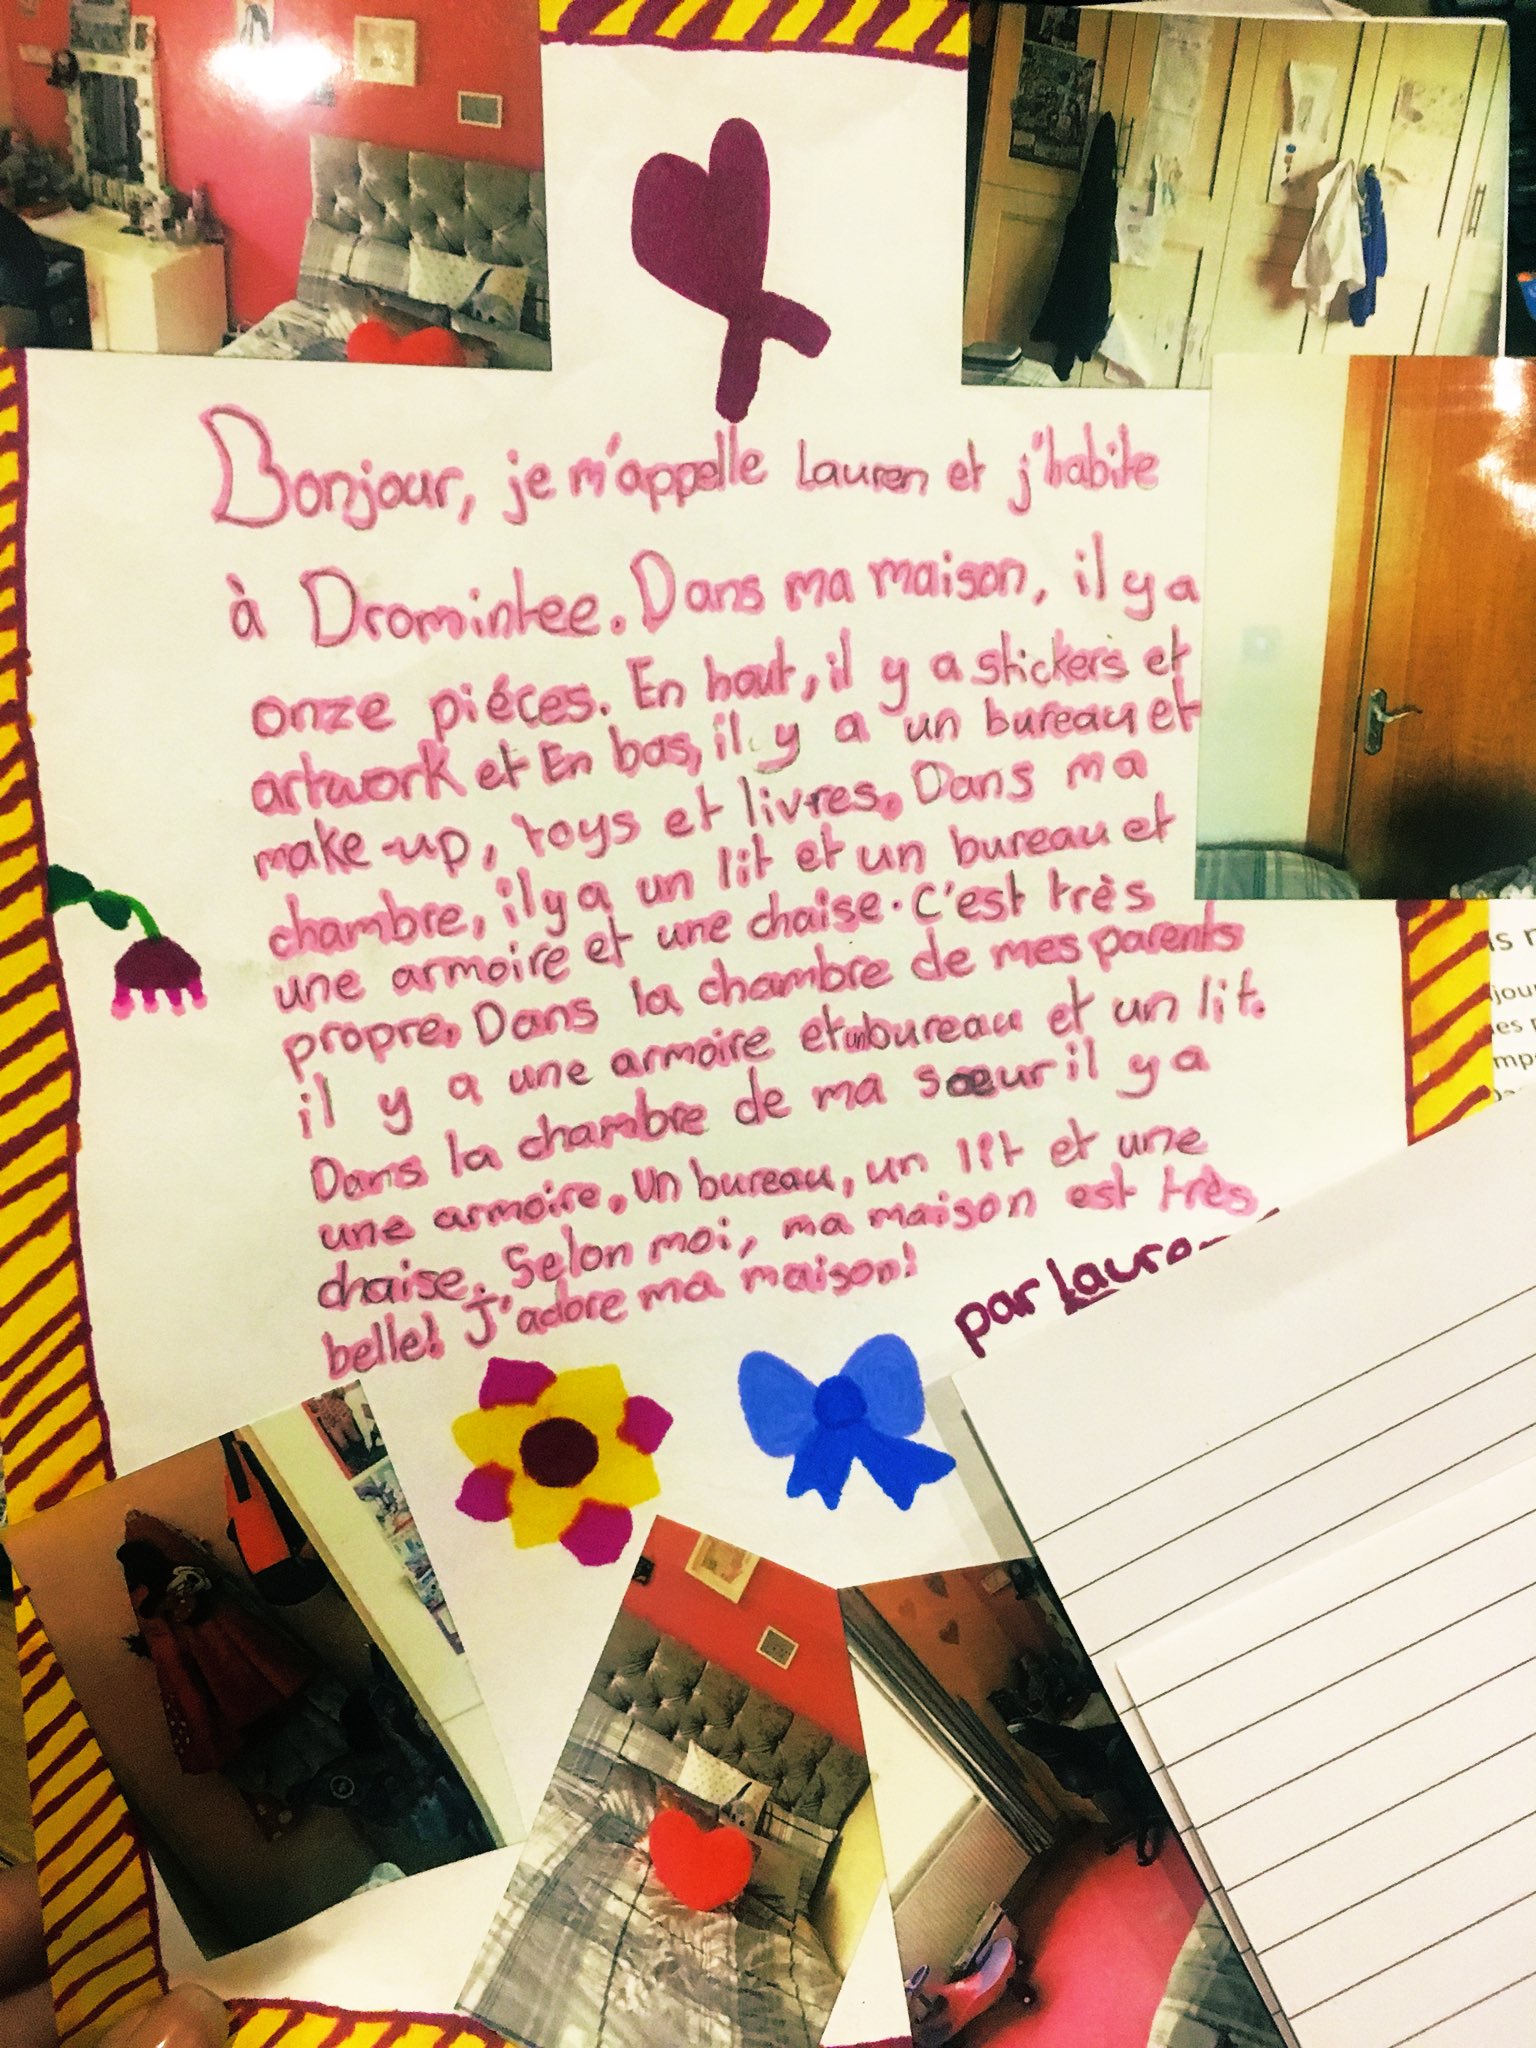 Bonjour, je m'appelle Lauren et j'habite
à Dromintee. Dans ma maison, il y a
onze piéces. En haut, il y a stickers et
artwork et En bas, il y a un bureau et
make-up, toys et livres. Dans ma
chambre, il y a un lit et un bureau et
une armoire et une chaise. C'est très
propre. Dans la chambre de mes parents
il y a une armoire et un bureau et un lit.
Dans la chambre de ma soeur il y a
une armoire, un bureau, un lit et une
chaise. Selon moi, ma maison est très
belle! J'adore ma maison!
par